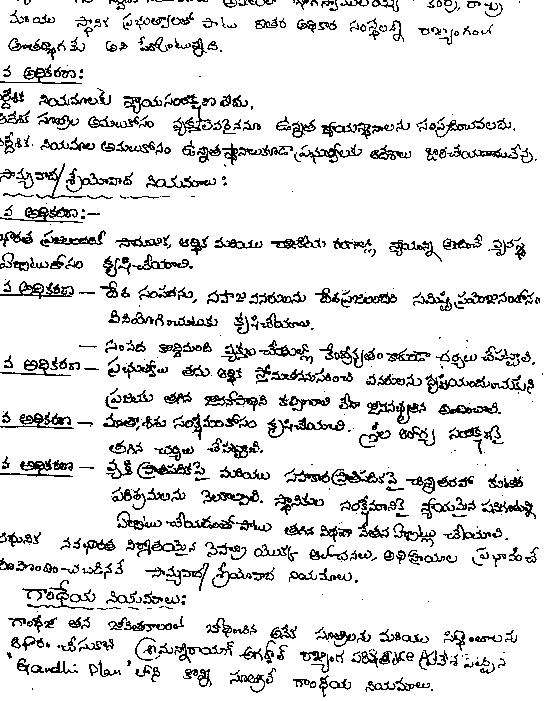 మరియు స్థానిక ప్రభుత్వాలతో పాటు ఇతర అధికార సంస్థలన్నీ రాజ్యంగంలో
అంతర్భాగమని అని పేర్కొంటున్నది.
వ అధికరణ:
నిర్దేశిక నియమాలకు న్యాయసంరక్షణ లేదు.
నిర్దేశిక సూత్రాల అమలుకోసం వ్యక్తులెవరైననూ ఉన్నత న్యాయస్థానాలను సంప్రదించవలదు.
నిర్దేశిక నియమాల అమలుకోసం ఉన్నతస్థానాలుకూడా ప్రభుత్వాలకు ఆదేశాలు జారీచేయజాలవు.
సామ్యవాద/శ్రేయోవాద నియమాలు:
వ అధికరణ:-
భారత ప్రజలందరికీ సామాజిక ఆర్థిక మరియు రాజకీయ రంగాల్లో న్యాయాన్ని అందించే వ్యవస్థ
ఏర్పాటుకోసం కృషిచేయాలి.
వ అధికరణ – దేశ సంపదను, సహజ వనరులను దేశప్రజలందరి సమిష్టి ప్రయోజనంకోసం
వినియోగించుటకు కృషిచేయాలి.
– సంపద కొద్దిమంది వ్యక్తుల చేతుల్లో కేంద్రీకృతం కాకుండా చర్యలు చేపట్టాలి.
వ అధికరణ – ప్రభుత్వాలు తమ ఆర్థిక స్తోమతననుసరించి వనరులను
ప్రజలకు తగిన జీవనోపాధిని కల్పించాలి లేదా జీవనభృతిని అందించాలి.
వ అధికరణ – మాతా, శిశు సంక్షేమంకోసం కృషిచేయాలి. స్త్రీల ఆరోగ్య సంరక్షణకై
తగిన చర్యలు చేపట్టాలి.
వ అధికరణ – వ్యక్తి ప్రాతిపదికపై మరియు సహకార ప్రాతిపదికపై చిన్నతరహా కుటీర
పరిశ్రమలను నెలకొల్పాలి. స్థానికుల సంక్షేమానికై న్యాయమైన పనిగంటల్ని
ఏర్పాటు చేయడంతో పాటు తగిన విధంగా వేతన ఏర్పాట్లు చేయాలి.
ఆధునిక నవభారత నిర్మాతయైన నెహ్రూ యొక్క ఆలోచనలు, అభిప్రాయాల ప్రభావంచే
రూపొందించబడినవే సామ్యవాద/శ్రేయోవాద నియమాలు.
గాంధేయ నియమాలు:
గాంధీజీ తన జీవితకాలంలో బోధించిన అనేక సూత్రాలను మరియు సిద్ధాంతాలను
ఆధారం చేసుకొని శ్రీమన్నారాయణ్ అగర్వాల్ రాజ్యాంగ పరిషత్తుకు
'Gandhi Plan' లోని కొన్ని సూత్రాలే గాంధేయ నియమాలు.